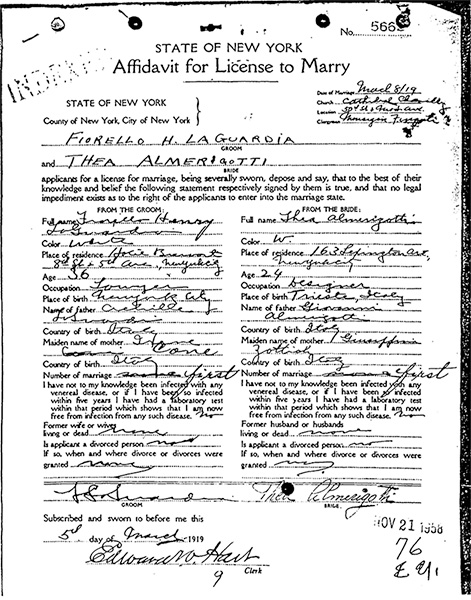 No. 5662
STATE OF NEW YORK
Affidavit for License to Marry
INDEXED
Date of Marriage March 8/19
Church Cathedral
Location
Clergyman
STATE OF NEW YORK
County of New York, City of New York
FIORELLO H. LAGUARDIA
GROOM
and THEA ALMERIGOTTI
BRIDE
applicants for a license for marriage, being severally sworn, depose and say, that to the best of their
knowledge and belief the following statement respectively signed by them is true, and that no legal
impediment exists as to the right of the applicants to enter into the marriage state.
FROM THE GROOM:
Full name Fiorello Henry
LaGuardia
Color White
Place of residence Hotel Brevoort
8th St & 5th Ave, New York City
Age 36
Occupation Lawyer
Place of birth New York City
Name of father Achille
LaGuardia
Country of birth Italy
Maiden name of mother Irene
Coen
Country of birth Italy
Number of marriage first
I have not to my knowledge been infected with any
venereal disease, or if I have been so infected
within five years I have had a laboratory test
within that period which shows that I am now
free from infection from any such disease. No
Former wife or wives
living or dead none
Is applicant a divorced person no
If so, when and where divorce or divorces were
granted none
FROM THE BRIDE:
Full name Thea Almerigotti
Color W.
Place of residence 163 Lexington Ave,
New York City
Age 24
Occupation Designer
Place of birth Trieste Italy
Name of father Giovanni
Almerigotti
Country of birth Italy
Maiden name of mother Giuseppina
Country of birth Italy
Number of marriage first
I have not to my knowledge been infected with any
venereal disease, or if I have been so infected
within five years I have had a laboratory test
within that period which shows that I am now
free from infection from any such disease. No
Former husband or husbands
living or dead none
Is applicant a divorced person no
If so, when and where divorce or divorces were
granted
F. LaGuardia
GROOM
Thea Almerigotti
BRIDE.
Subscribed and sworn to before me this
5th day of March 1919
Edward W. Hart
Clerk
9
NOV 21 1958
76